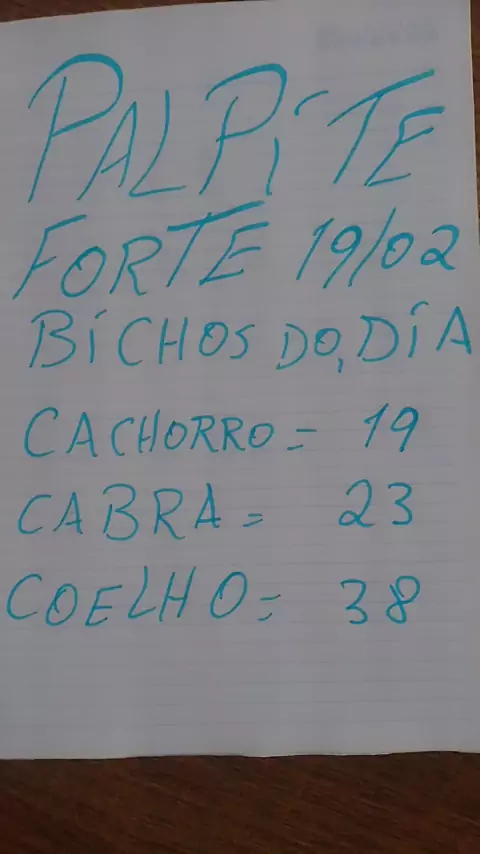 PALPÍTE
FORTE 19/02
BÍCHOS DO, DÍA
CACHORRO = 19
CABRA = 23
COELHO = 38